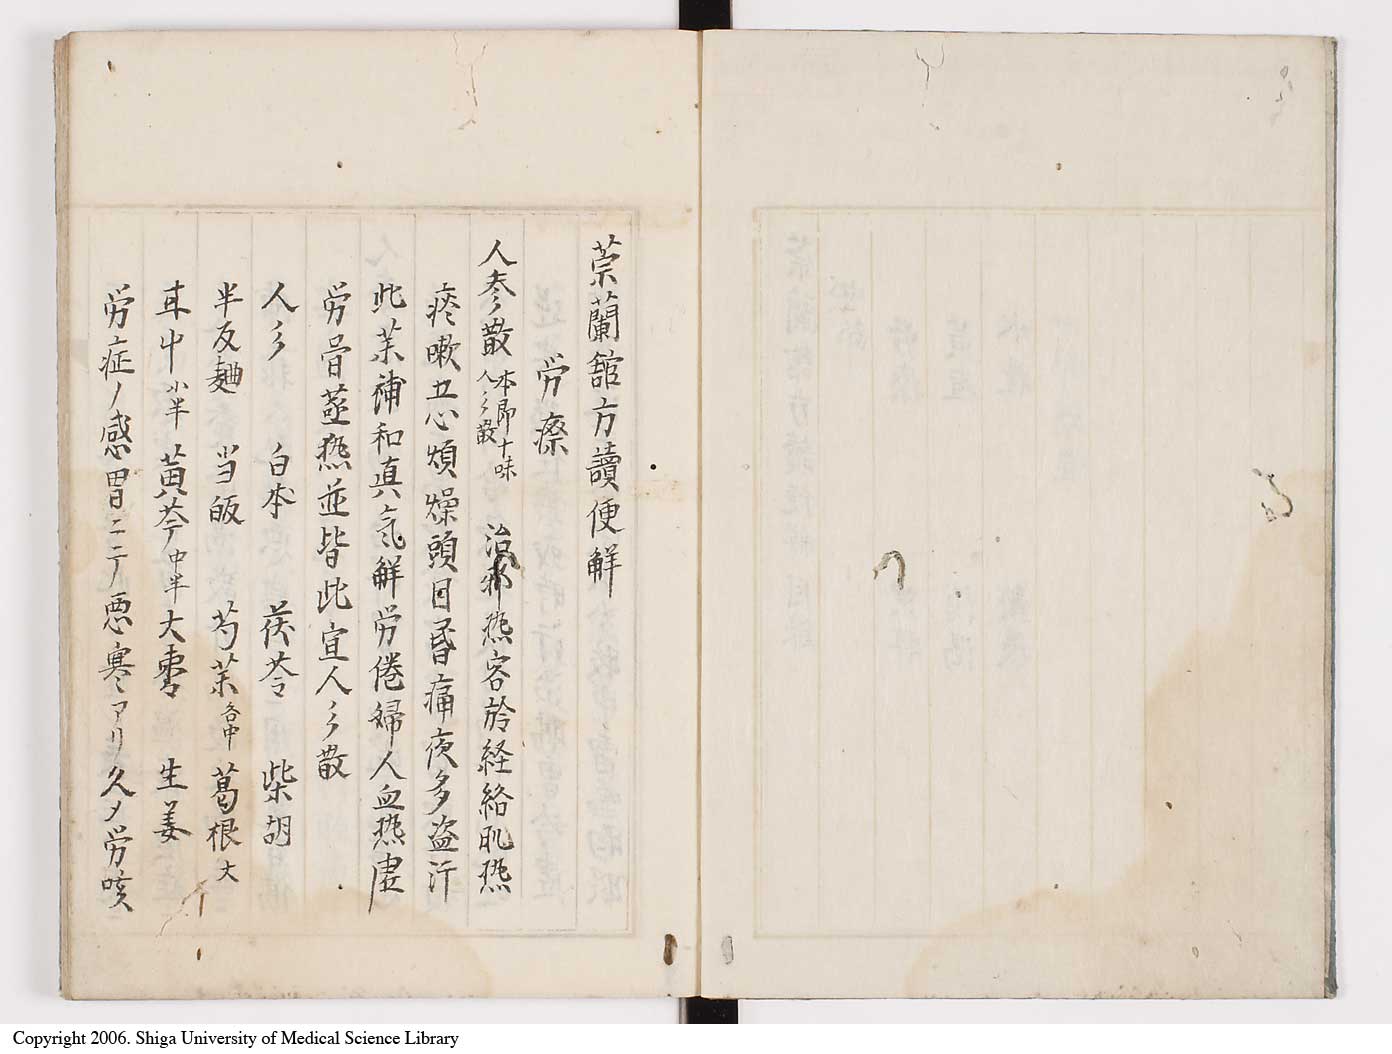 崇蘭舘方讀便解
労瘵
人参散 本即十味人参散 治邪熱客於経絡肌熱
痰嗽五心煩燥頭目昏痛夜多盗汗
此薬補和真気解労倦婦人血熱虚
労骨蒸熱並皆此宜人参散
人参 白朮 茯苓 柴胡
半夏麹 当皈 芍薬各中 葛根大
甘中小半 黄芩中半 大棗 生姜
労症ノ感冒ニテ悪寒アリ久メ労咳
Copyright 2006. Shiga University of Medical Science Library